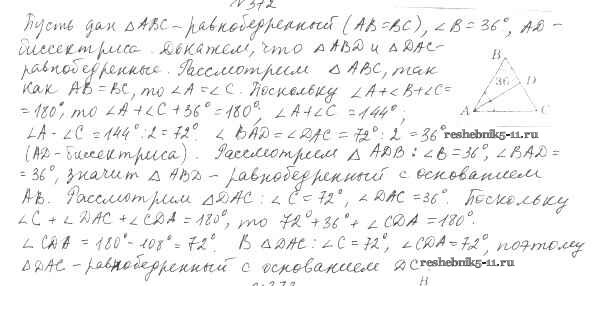 №372
Пусть дан △ABC – равнобедренный (AB=BC), ∠B=36°, AD –
биссектриса. Докажем, что △ABD и △DAC –
равнобедренные. Рассмотрим △ABC, так
как AB=BC, то ∠A=∠C. Поскольку ∠A+∠B+∠C=
=180°, то ∠A+∠C+36°=180°, ∠A+∠C=144°,
∠A-∠C=144°:2=72° ∠BAD=∠DAC=72°:2=36°
(AD-биссектриса). Рассмотрим △ADB: ∠B=36°, ∠BAD=
=36°, значит △ABD – равнобедренный с основанием
AB. Рассмотрим △DAC: ∠C=72°, ∠DAC=36°. Поскольку
∠C+∠DAC+∠CDA=180°, то 72°+36°+∠CDA=180°.
∠CDA=180°-108°=72°. В △DAC: ∠C=72°, ∠CDA=72°, поэтому
△DAC – равнобедренный с основанием DC.
B
36
D
A
C
reshebnik5-11.ru
reshebnik5-11.ru
B